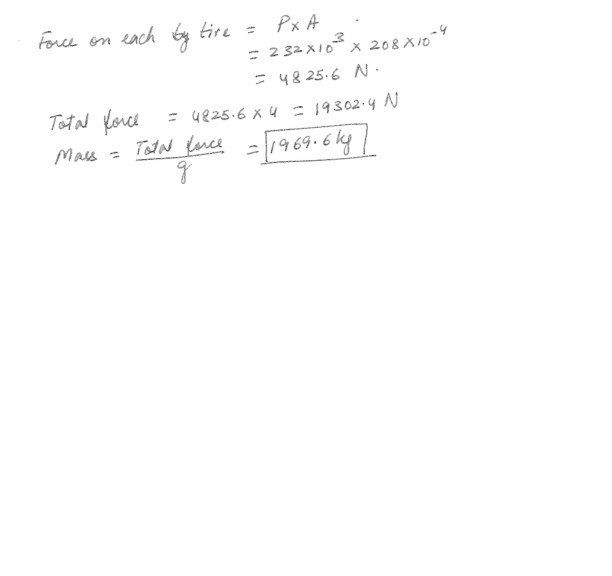 Force on each by tire = P x A
= 232 x 10³ x 208 x 10⁻⁴
= 4825.6 N.
Total force = 4825.6 x 4 = 19302.4 N
Mass = Total force / g = 1969.6 kg